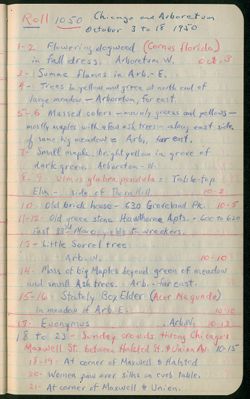 Roll 1050 Chicago and Arboretum
October 3 to 18 1950
1-2. Flowering dogwood (Cornus florida)
in full dress. Arboretum W. Oct-3
3- Sumac flames in Arb.-E.
4- Trees in yellow and green at north end of
large meadow - Arboretum, far east.
5-6 Massed colors - mainly greens and yellows -
mostly maples with a few ash trees - along east side
of same big meadow = Arb, far east.
7- Small maple, bright yellow in grove of
dark green. Arboretum - W.
8-9 Ulmus glabra pendula = Table-top
Elm - side of 10-2
10- Old brick house - 630 Groveland Pk. 10-5
11-12- Old green stone Hawthorne Apts. - 600 to 620
East 88th
13- Little Sorrel tree.
Arb.-W. 10-10
14- Mass of big Maples beyond green of meadow
and small Ash tree. Arb. far east.
15-16- Stately Box Elder (Acer Negundo)
in meadow of Arb E. 10-10
17- Euonymus Arb.W. 10-12
18 to 23 - Sunday crowds throng Chicago's
Maxwell St. between Halsted St. & Union Av. 10-15
18-19- At corner of Maxwell & Halsted
20- Women paw over silks on curb table.
21- At corner of Maxwell & Union.